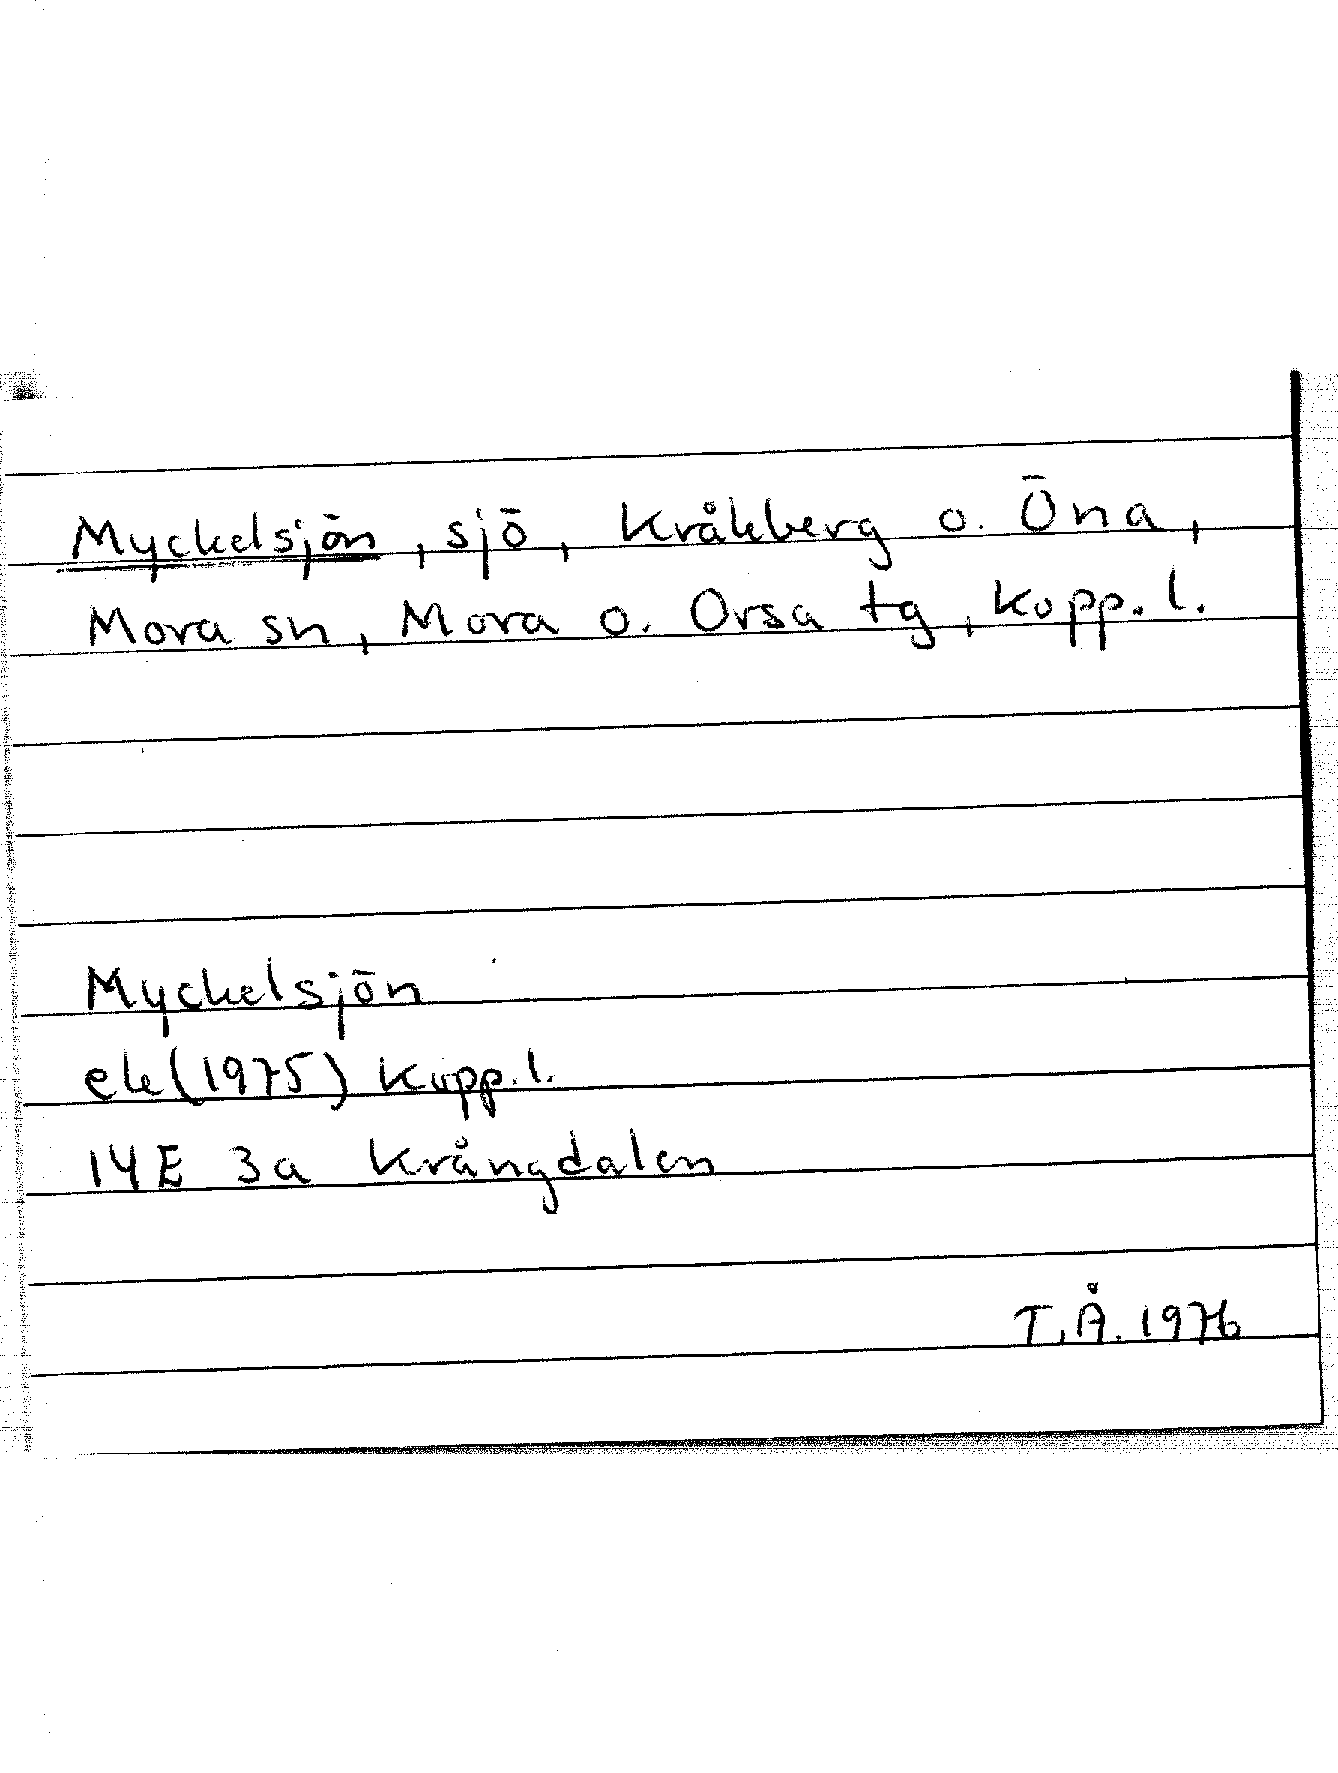 Myckelsjön, sjö, Kråkberg o. Öna,
Mora sn, Mora o. Orsa tg, Kopp. l.
Myckelsjön
ek (1975) Kopp. l.
14E 3a Krångdalen
T.Å. 1976